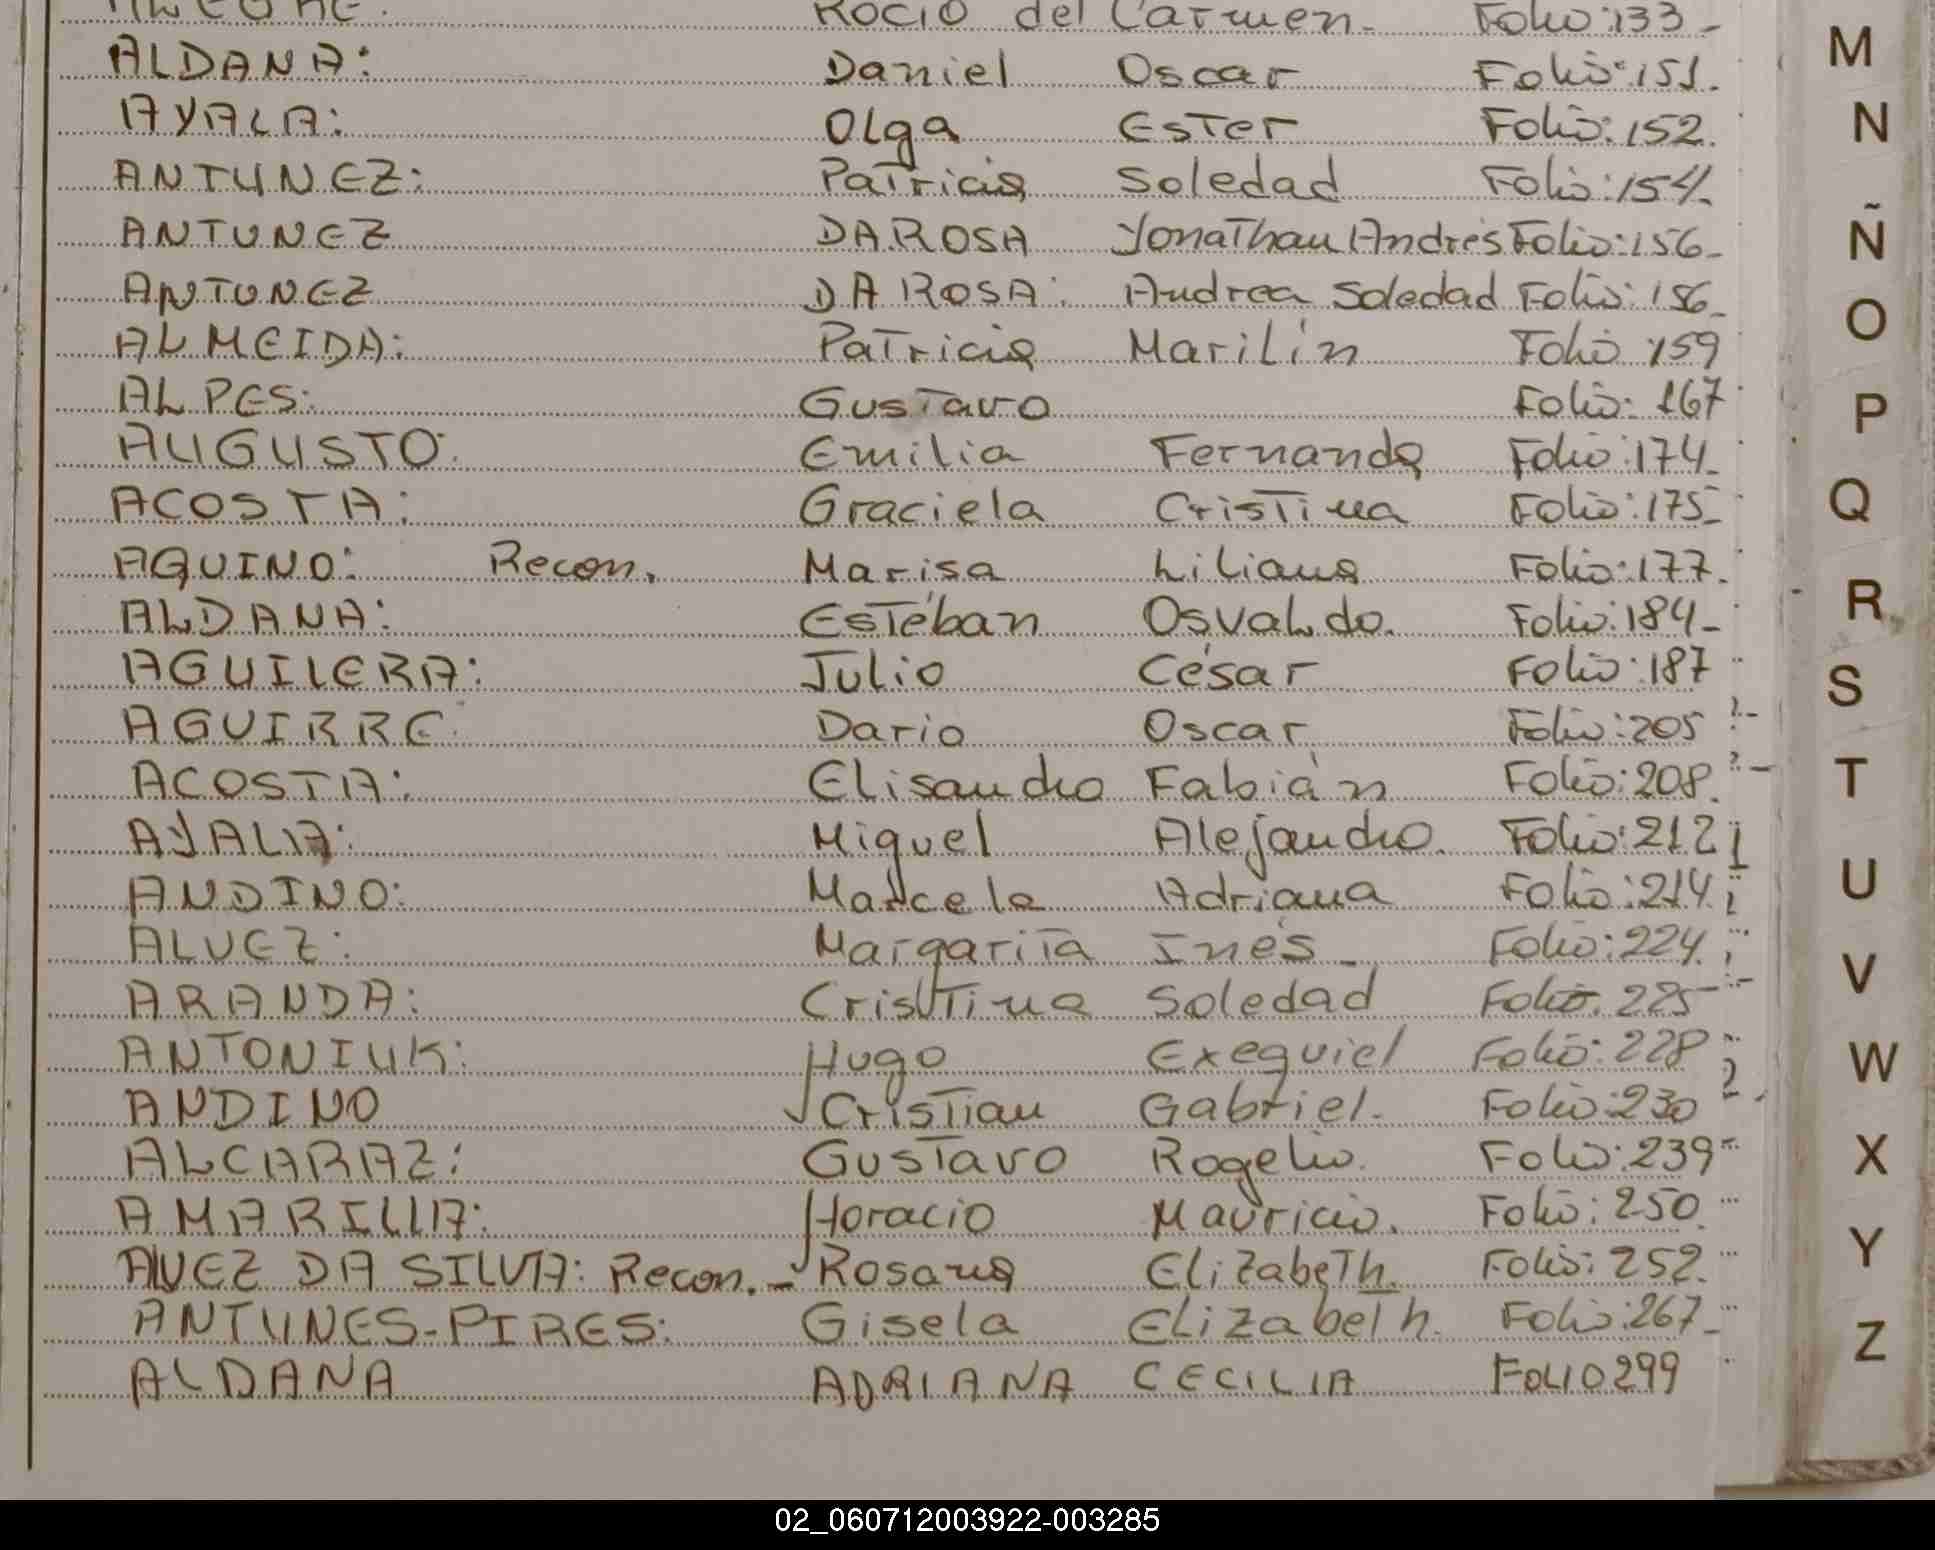 Rocio del Carmen. Folio:133-
ALDANA: Daniel Oscar Folio:151.
AYALA: Olga Ester Folio:152.
ANTUNEZ: Patricia Soledad Folio:154.
ANTUNEZ DA ROSA Yonathan Andrés Folio:156-
ANTUNEZ DA ROSA: Andrea Soledad Folio:156-
ALMEIDA: Patricia Marilín Folio 159
ALPES: Gustavo Folio:167
AUGUSTO: Emilia Fernanda Folio:174-
ACOSTA: Graciela Cristina Folio:175-
AQUINO: Recon. Marisa Liliana Folio:177.
ALDANA: Estéban Osvaldo. Folio:184-
AGUILERA: Julio César Folio:187
AGUIRRE Dario Oscar Folio:205
ACOSTA: Elisandro Fabián Folio:208.
AYALA: Miguel Alejandro. Folio:212
ANDINO: Marcela Adriana Folio:214
ALVEZ: Margarita Inés- Folio:224.
ARANDA: Cristina Soledad Folio. 225
ANTONIUK: Hugo Exequiel Folio:228
ANDINO Cristian Gabriel. Folio:230
ALCARAZ: Gustavo Rogelio. Folio:239
AMARILLA: Horacio Mauricio. Folio:250
ALVEZ DA SILVA: Recon.- Rosana Elizabeth. Folio:252
ANTUNES-PIRES: Gisela Elizabeth. Folio:267-
ALDANA ADRIANA CECILIA FOLIO 299
M
N
Ñ
O
P
Q
R
S
T
U
V
W
X
Y
Z
02_060712003922-003285